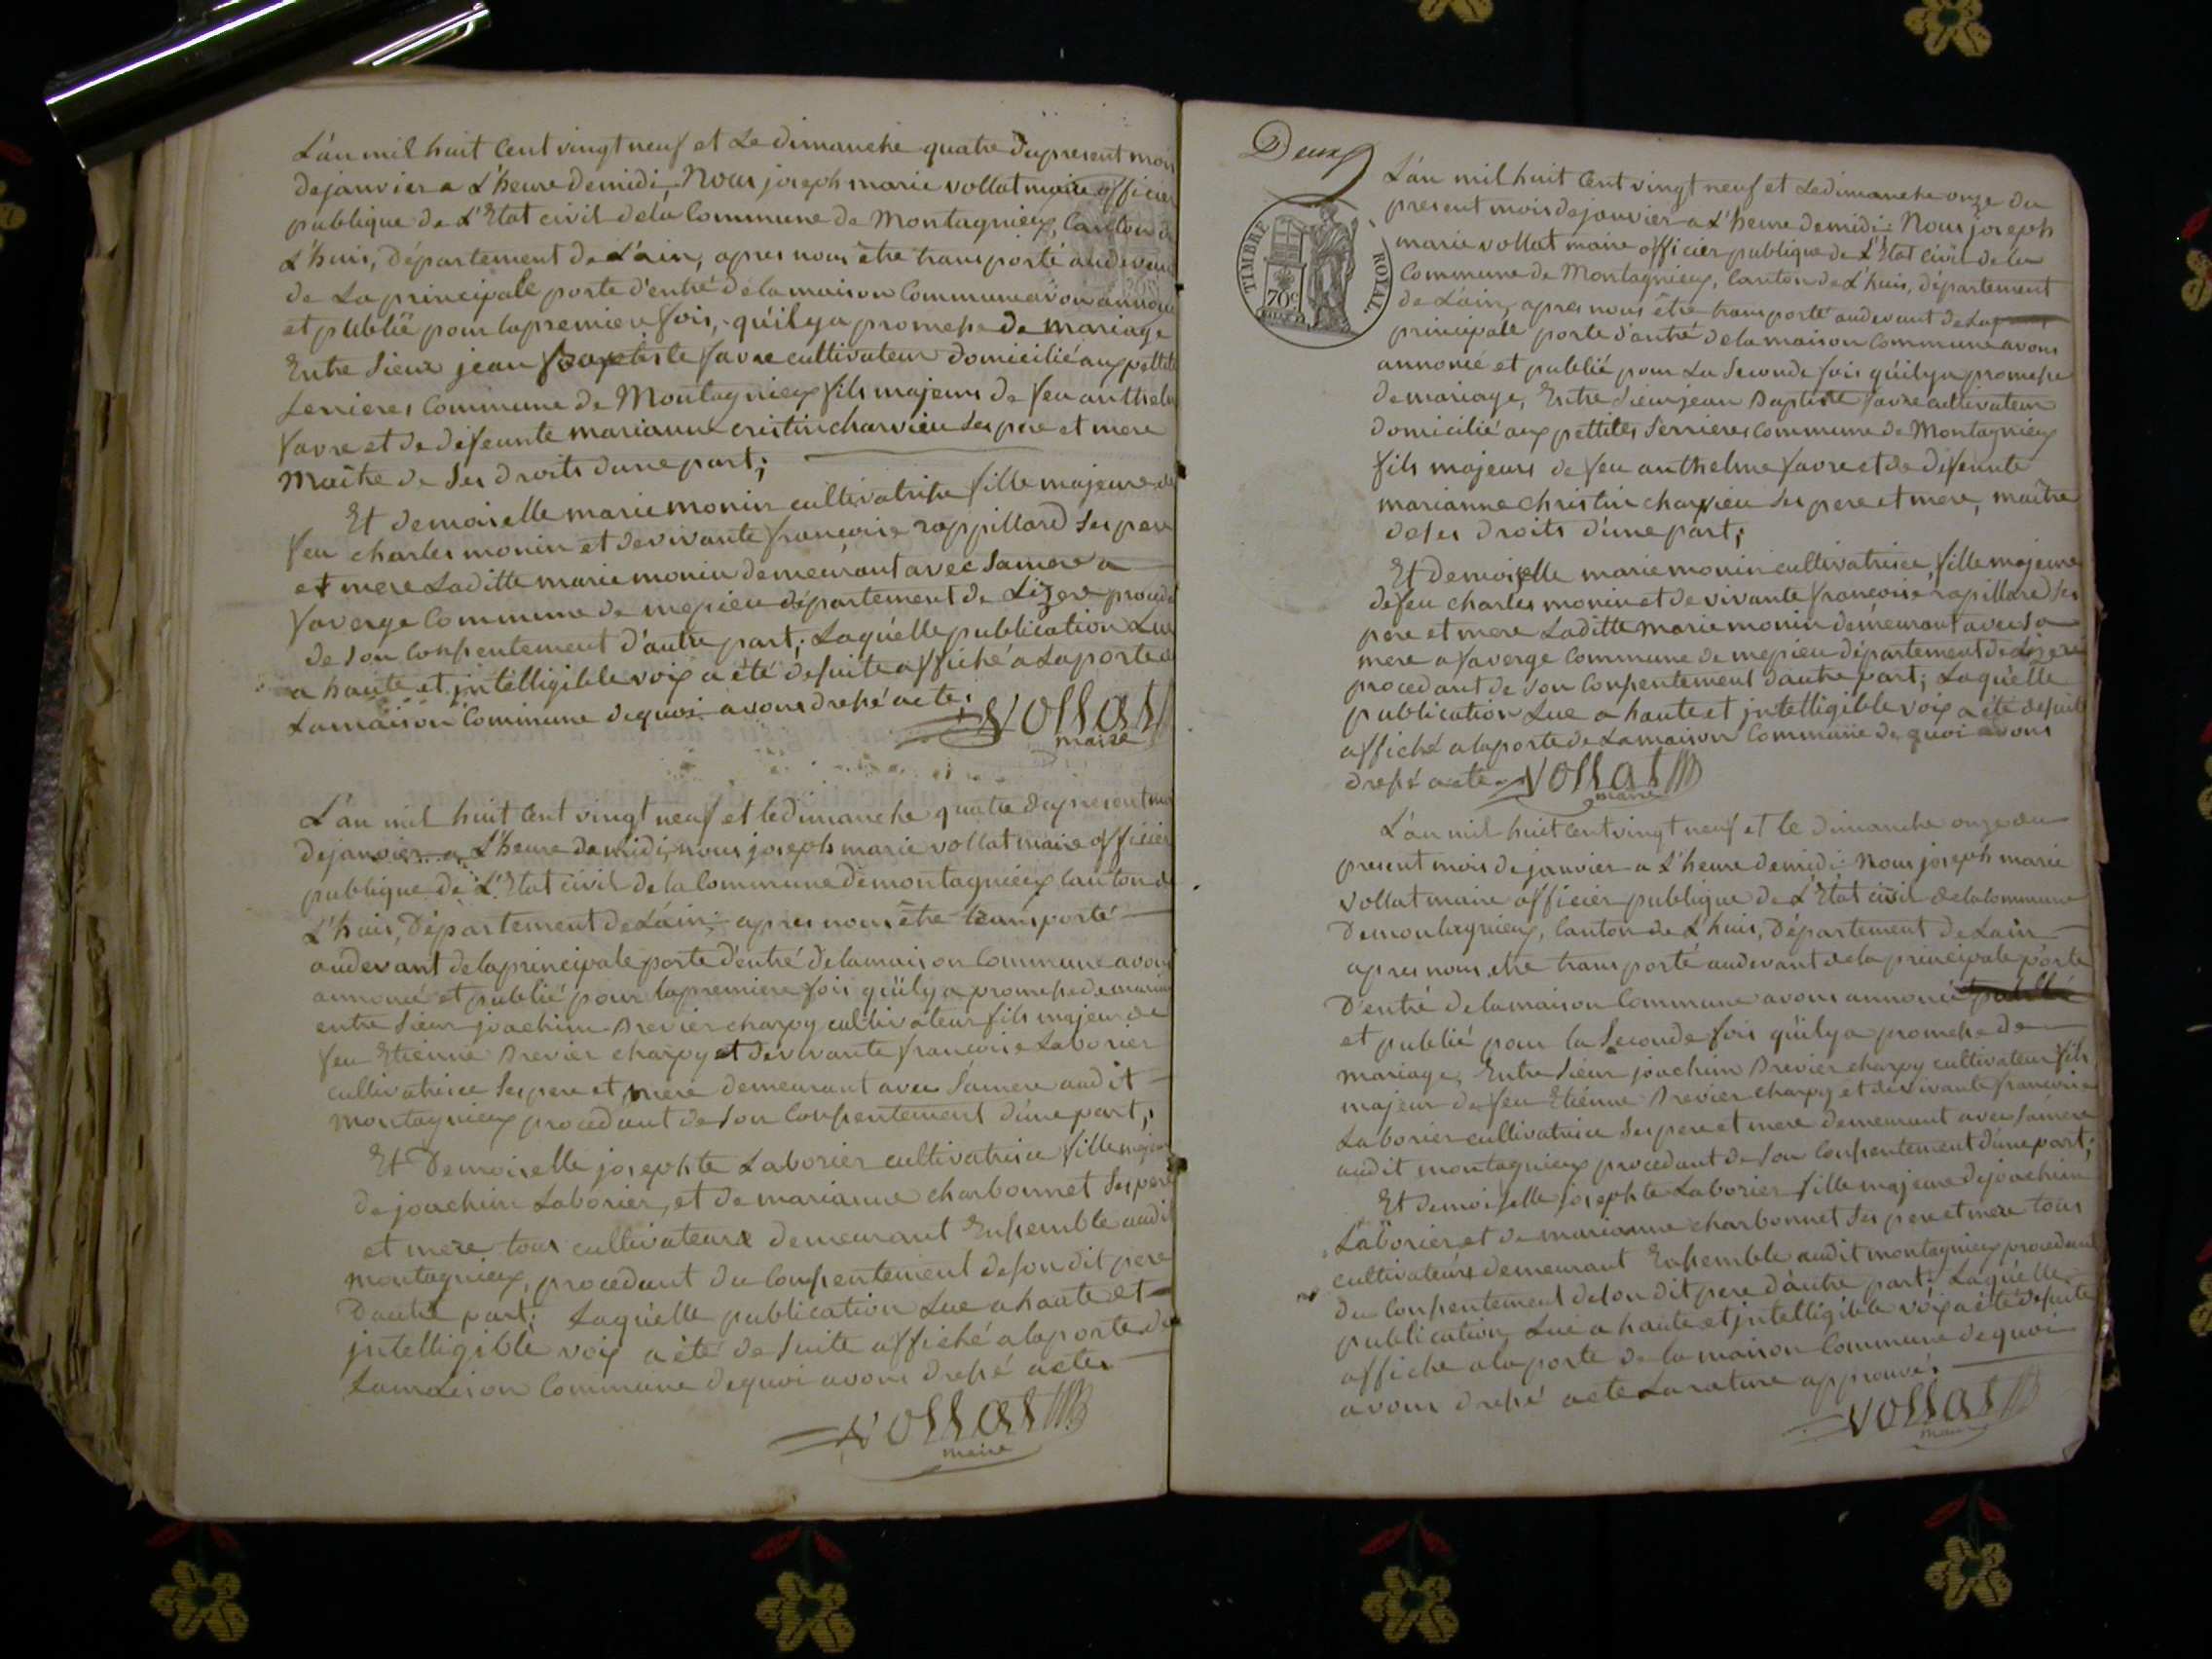 L'an mil huit Cent vingt neuf et Le dimanche quatre du present mois
de janvier a L'heure de midi, Nous joseph marie vollat maire officier
publique de L'Etat civil de la Commune de Montagnieux, Canton de
L'huis, Département de L'ain, apres nous être transporté audevant
de La principale porte d'entré de la maison Commune avon annoncé
et publié pour la premiere fois, qu'il y a promesse de mariage
Entre Sieur jean Baptiste favre cultivateur domicilié aux pettite
Serrieres Commune de Montagnieux fils majeurs de feu anthelm
favre et de défeunte marianne cristin charvieu ses pere et mere
Maître de Ses droits dune part;
Et demoiselle marie monin cultivatrise fille majeure de
feu charles monin et de vivante françoise rappillard ses pere
et mere Laditte marie monin demeurant avec Sa mere a
faverge Commune de mepieu département de Lizere procéd
de son Consentement d'autre part; Laquelle publication Lue
a haute et intelligible voix a été desuite affiché a La porte de
La maison Commune dequoi avons dressé acte.
vollat
maire
L'an mil huit Cent vingt neuf et le dimanche quatre du present moi
de janvier a L'heure de midi, nous joseph marie vollat maire officier
publique de L'Etat civil de la Commune de montagnieux Canton de
L'huis, Département de Lain, apres nous être transporté
audevant de la principale porte d'entré de la maison Commune avons
annoncé et publié pour la premiere fois qu'il y a promesse de mariage
entre Sieur joachim Brevier charpy cultivateur fils majeur de
feu Etienne Brevier charpy et de vivante francoise Laborier
cultivatrice Ses pere et mere demeurant avec Sa mere audit
montagnieux procedant de Son Consentement d'une part,
Et Demoiselle josephte Laborier cultivatrice fille majeur
de joachim Laborier, et de marianne charbonnet Ses pere
et mere tous cultivateurs demeurant Ensemble audit
montagnieux, procedant du Consentement de son dit pere
D'autre part; Laquelle publication Lue a haute et
jntelligible voix a été de Suite affiché a la porte de
La maison Commune dequoi avons dressé acte
vollat
maire
Deux
TIMBRE ROYAL
70c
L'an mil huit Cent vingt neuf et Le dimanche onze du
present mois de janvier a L'heure de midi: Nous joseph
marie vollat maire officier publique de L'Etat civil de la
Commune de Montagnieux, Canton de L'huis, département
de L'ain, apres nous être transporté audevant de La
principale porte d'entré de la maison Commune avons
annoncé et publié pour La Seconde fois qu'il y a promesse
de mariage, Entre Sieur jean Baptiste favre cultivateur
domicilié aux pettites Serrieres Commune de Montagnieux
fils majeurs de feu anthelme favre et de défeunte
marianne christin charvieu Ses pere et mere, maître
de Ses droits d'une part;
Et Demoiselle marie monin cultivatrice fille majeure
de feu charles monin et de vivante françoise rapillard Ses
pere et mere Laditte marie monin demeurant avec Sa
mere a faverge Commune de mepieu département de Lizere
procedant de Son Consentement d'autre part; Laquélle
publication Lue a haute et jntelligible voix a été desuite
affiché a la porte de La maison Commune de quoi avons
dressé acte. vollat
maire
L'an mil huit Cent vingt neuf et le dimanche onze du
present mois de janvier a L'heure de midi: Nous joseph marie
vollat maire officier publique de L'Etat civil de la Commune
De montagnieux, Canton de L'huis, Département de Lain
apres nous etre transporté audevant de la principale porte
D'entré de la maison Commune avons annoncé
et publié pour la Seconde fois qu'il y a promesse de
mariage, Entre Sieur joachim Brevier charpy cultivateur fils
majeur de feu Etiénne Brevier charpy et de vivante francoise
Laborier cultivatrice Ses pere et mere demeurant avec Sa mere
audit montagnieux procedant de Son Consentement d'une part;
Et demoiselle josephte Laborier fille majeure de joachim
Laborier, et de marianne charbonnet Ses pere et mere tous
cultivateurs demeurant Ensemble audit montagnieux procedant
du Consentement de Son dit pere d'autre part; Laquélle
publication Lue a haute et jntelligible voix a été desuite
affiché a la porte de la maison Commune dequoi
avons dressé acte La rature approuvé.
vollat
maire